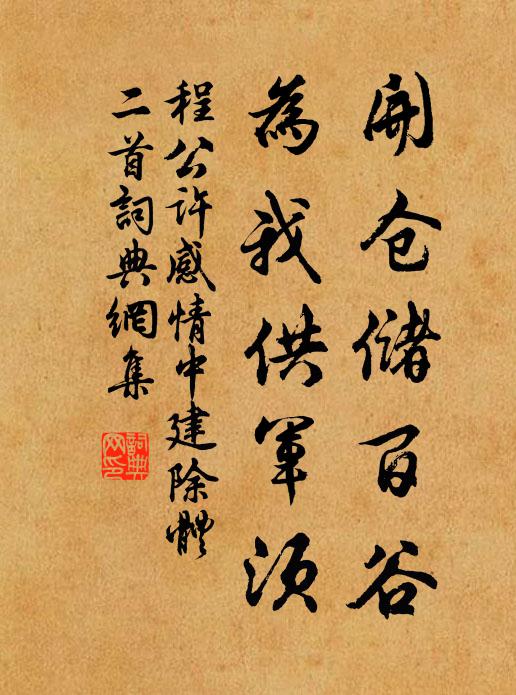 開仓儲百谷
為我供軍須
程公许感情中建除體
二首詞典網集
詞典網印